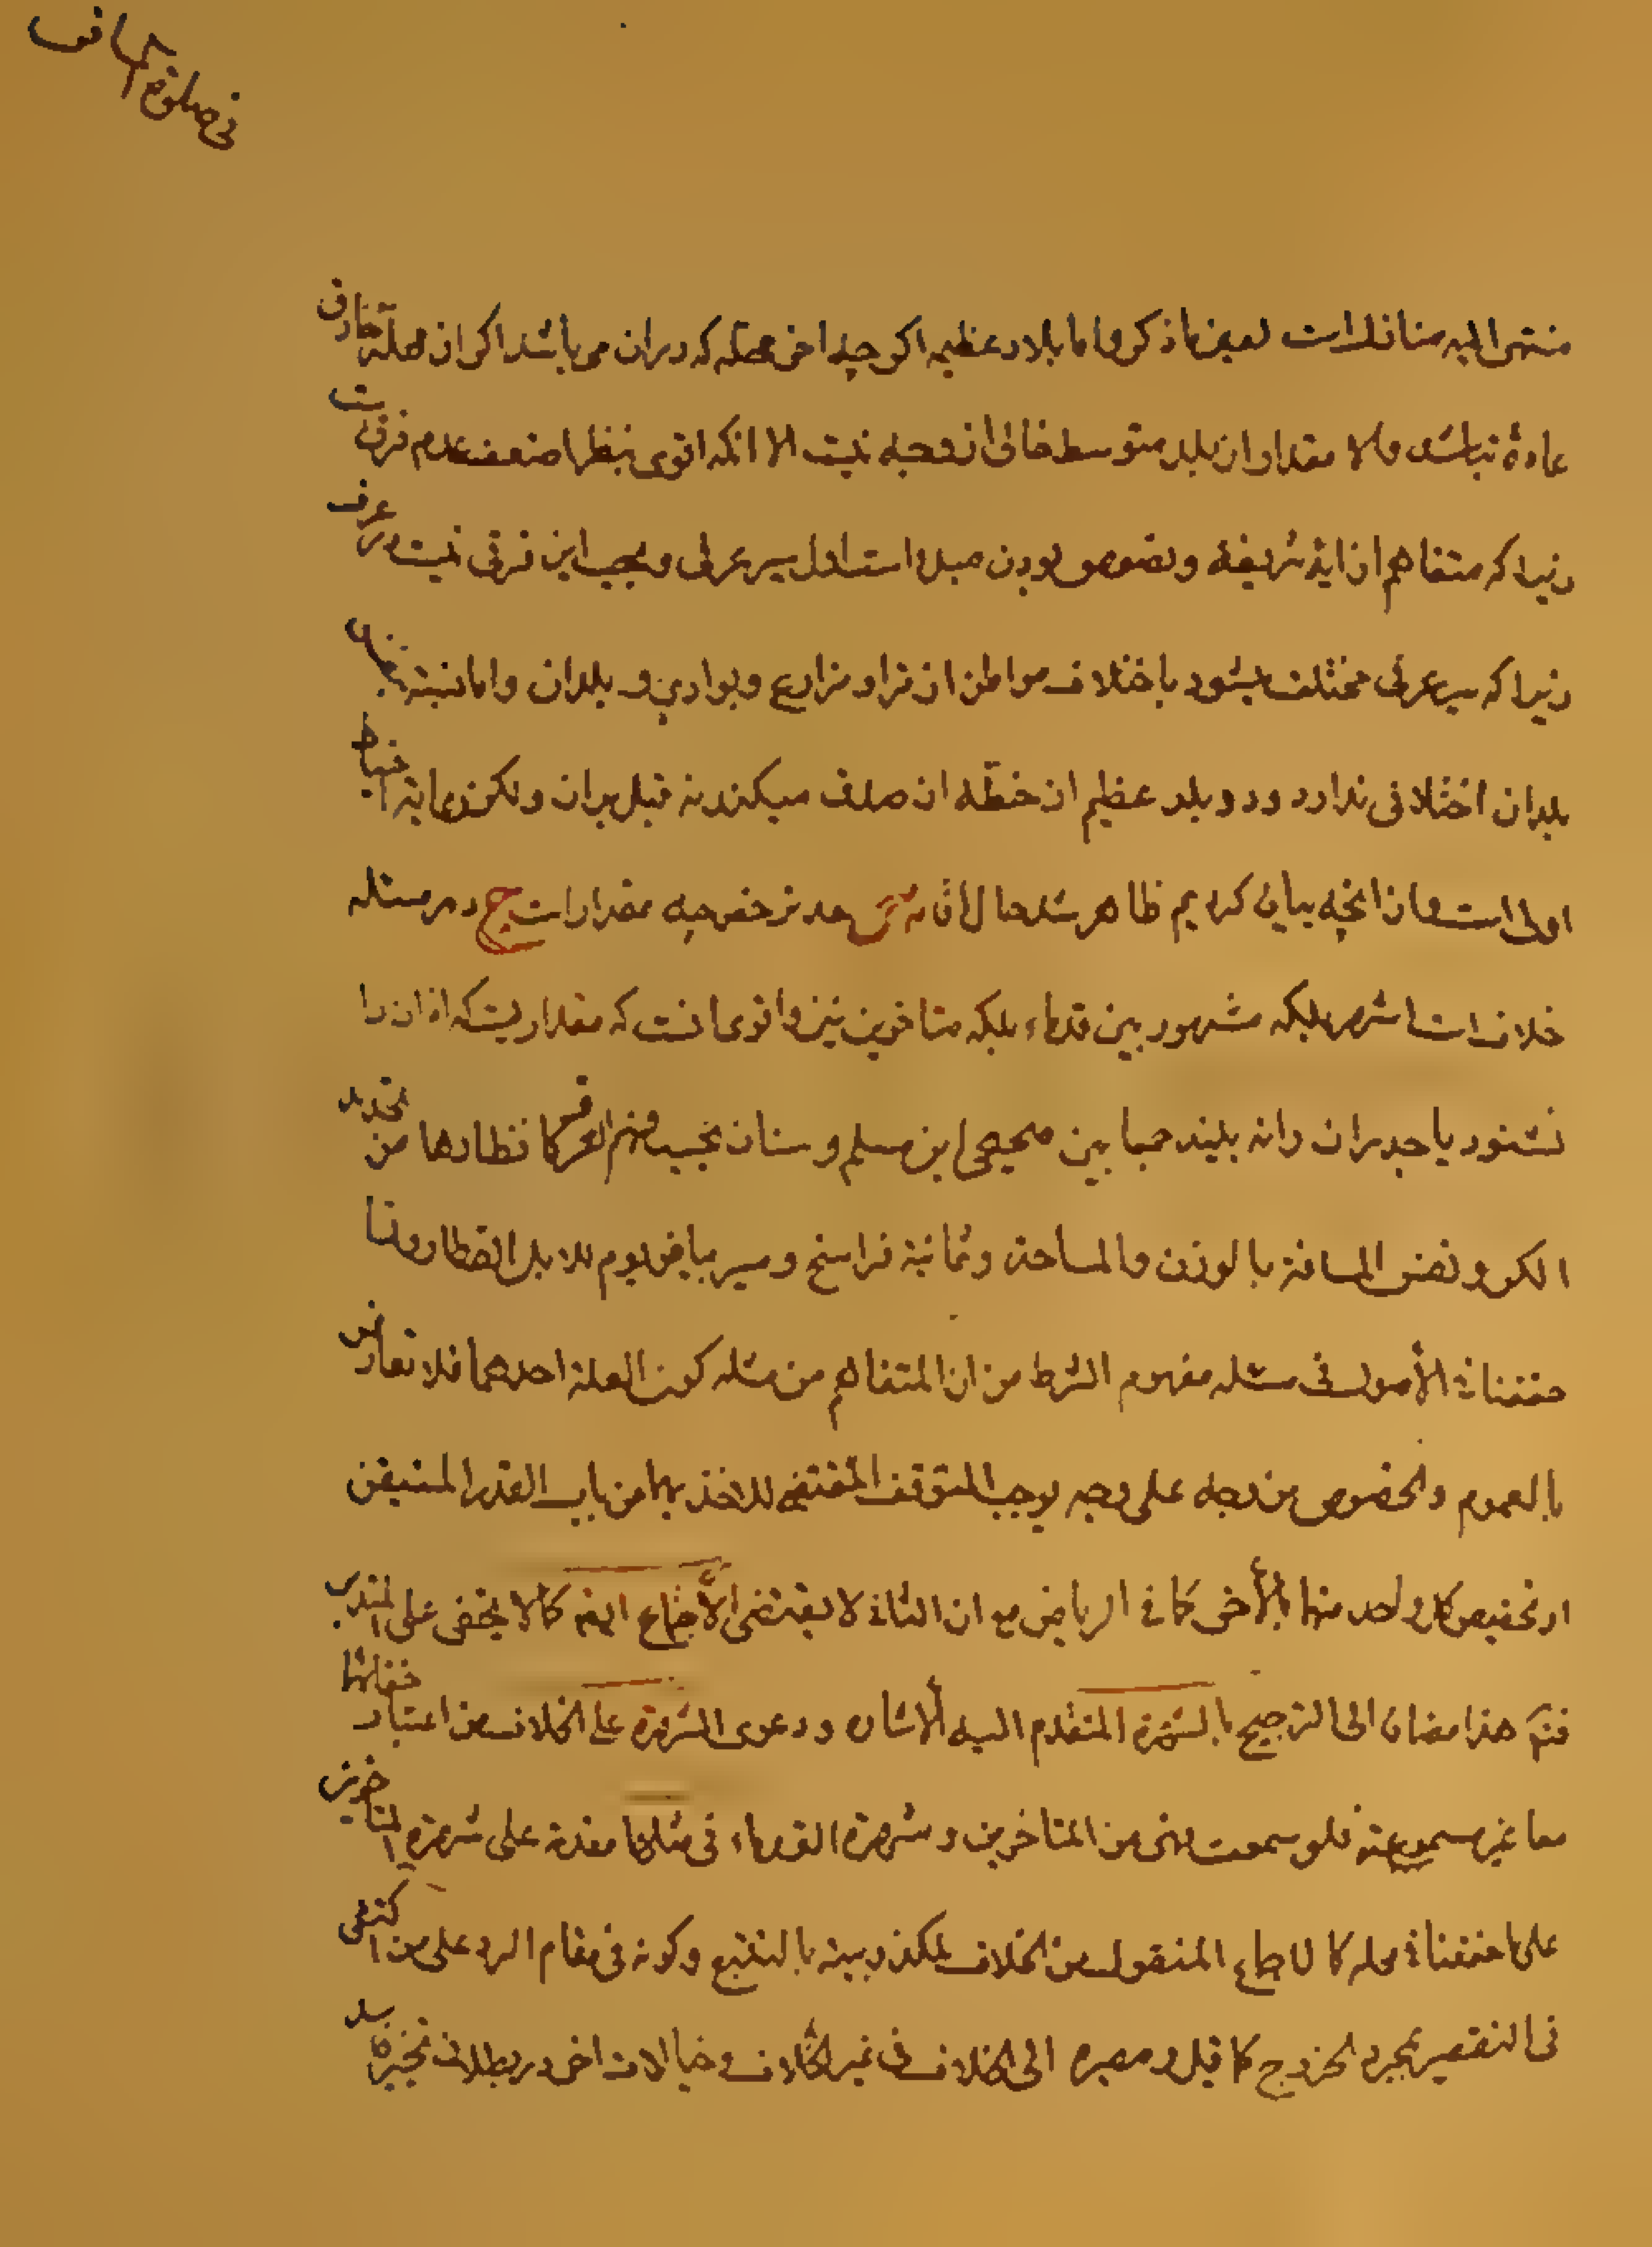 في صلوة المسافر
منتهى اليه منازلست لعين ماذكر واما بلاد عظيمه اكر چه اخر محله كه دران مى باشد اكر ان محله خارق
عادة نباشد والا مقدار ان بلد متوسط خالى از وجه نيست الا انكه اقوى بنظر اضعف عدم فرقست
زيرا كه متفاهم از ايه شريفه ونصوص بودن مبدء استدلال سير عرفى وبحسب اين فرقى نيست در عرف
زيرا كه سير عرفى مختلف ميشود باختلاف مواطن از قرا ومزارع وبوادي و بلدان واما نسبة بنفس
بلدان اختلافى ندارد ودو بلد عظيم از خطه ان صدق ميكند نه قبل بران ولكن رعاية احتياط
اولى است واز انچه بيان كرديم ظاهر شد حال اقامه س حد ترخص چه مقدار است ج در مسئله
خلاف است اشهر بلكه مشهور بين قدماء بلكه متاخرين نيز واقوى انست كه مقداريست كه اذان را
نشنود يا جدران را نه بيند جمعا بين صحيحى ابن مسلم وسنان بحسب فهم العرف كانظارها من تحديد
الكر ونفس المسافة بالوزن والمساحة وثمانية فراسخ ومسير بياض يوم للابل القطار وفاقا
حققناه في الأصول في مسئله مفهوم الشرط من ان المتفاهم من مثله كون العلة احدهما فلا تعارض
بالعموم والخصوص من وجه على وجه يوجب التوقف المقتضى للاخذ بهما من باب القدر المتيقن
او تخصيص كل واحد منهما بالأخر كما في الرياض مع ان الثاني لا يقتضي الأجتماع ايضا كما لا يخفى على المتدرب
فتم هذا مضافا الى الترجيح بالشهرة المتقدم اليه الاشاره ودعوى الشهرة على الخلاف من اعتبار خفائهما
معا غير مسموعة فلو سمعت فهى من المتاخرين وشهرة القدماء في مثلها مقدمة على شهرة المتاخرين
على ما حققناه في محله كالاجماع المنقول من الخلاف لمكذوبيته بالتتبع وكونه في مقام الرد على من اكتفى
في التقصير بمجرد الخروج كما قيل ومصيره الى الخلاف في غير الخلاف وخيالات اخر در بطلان تخيير فاسد